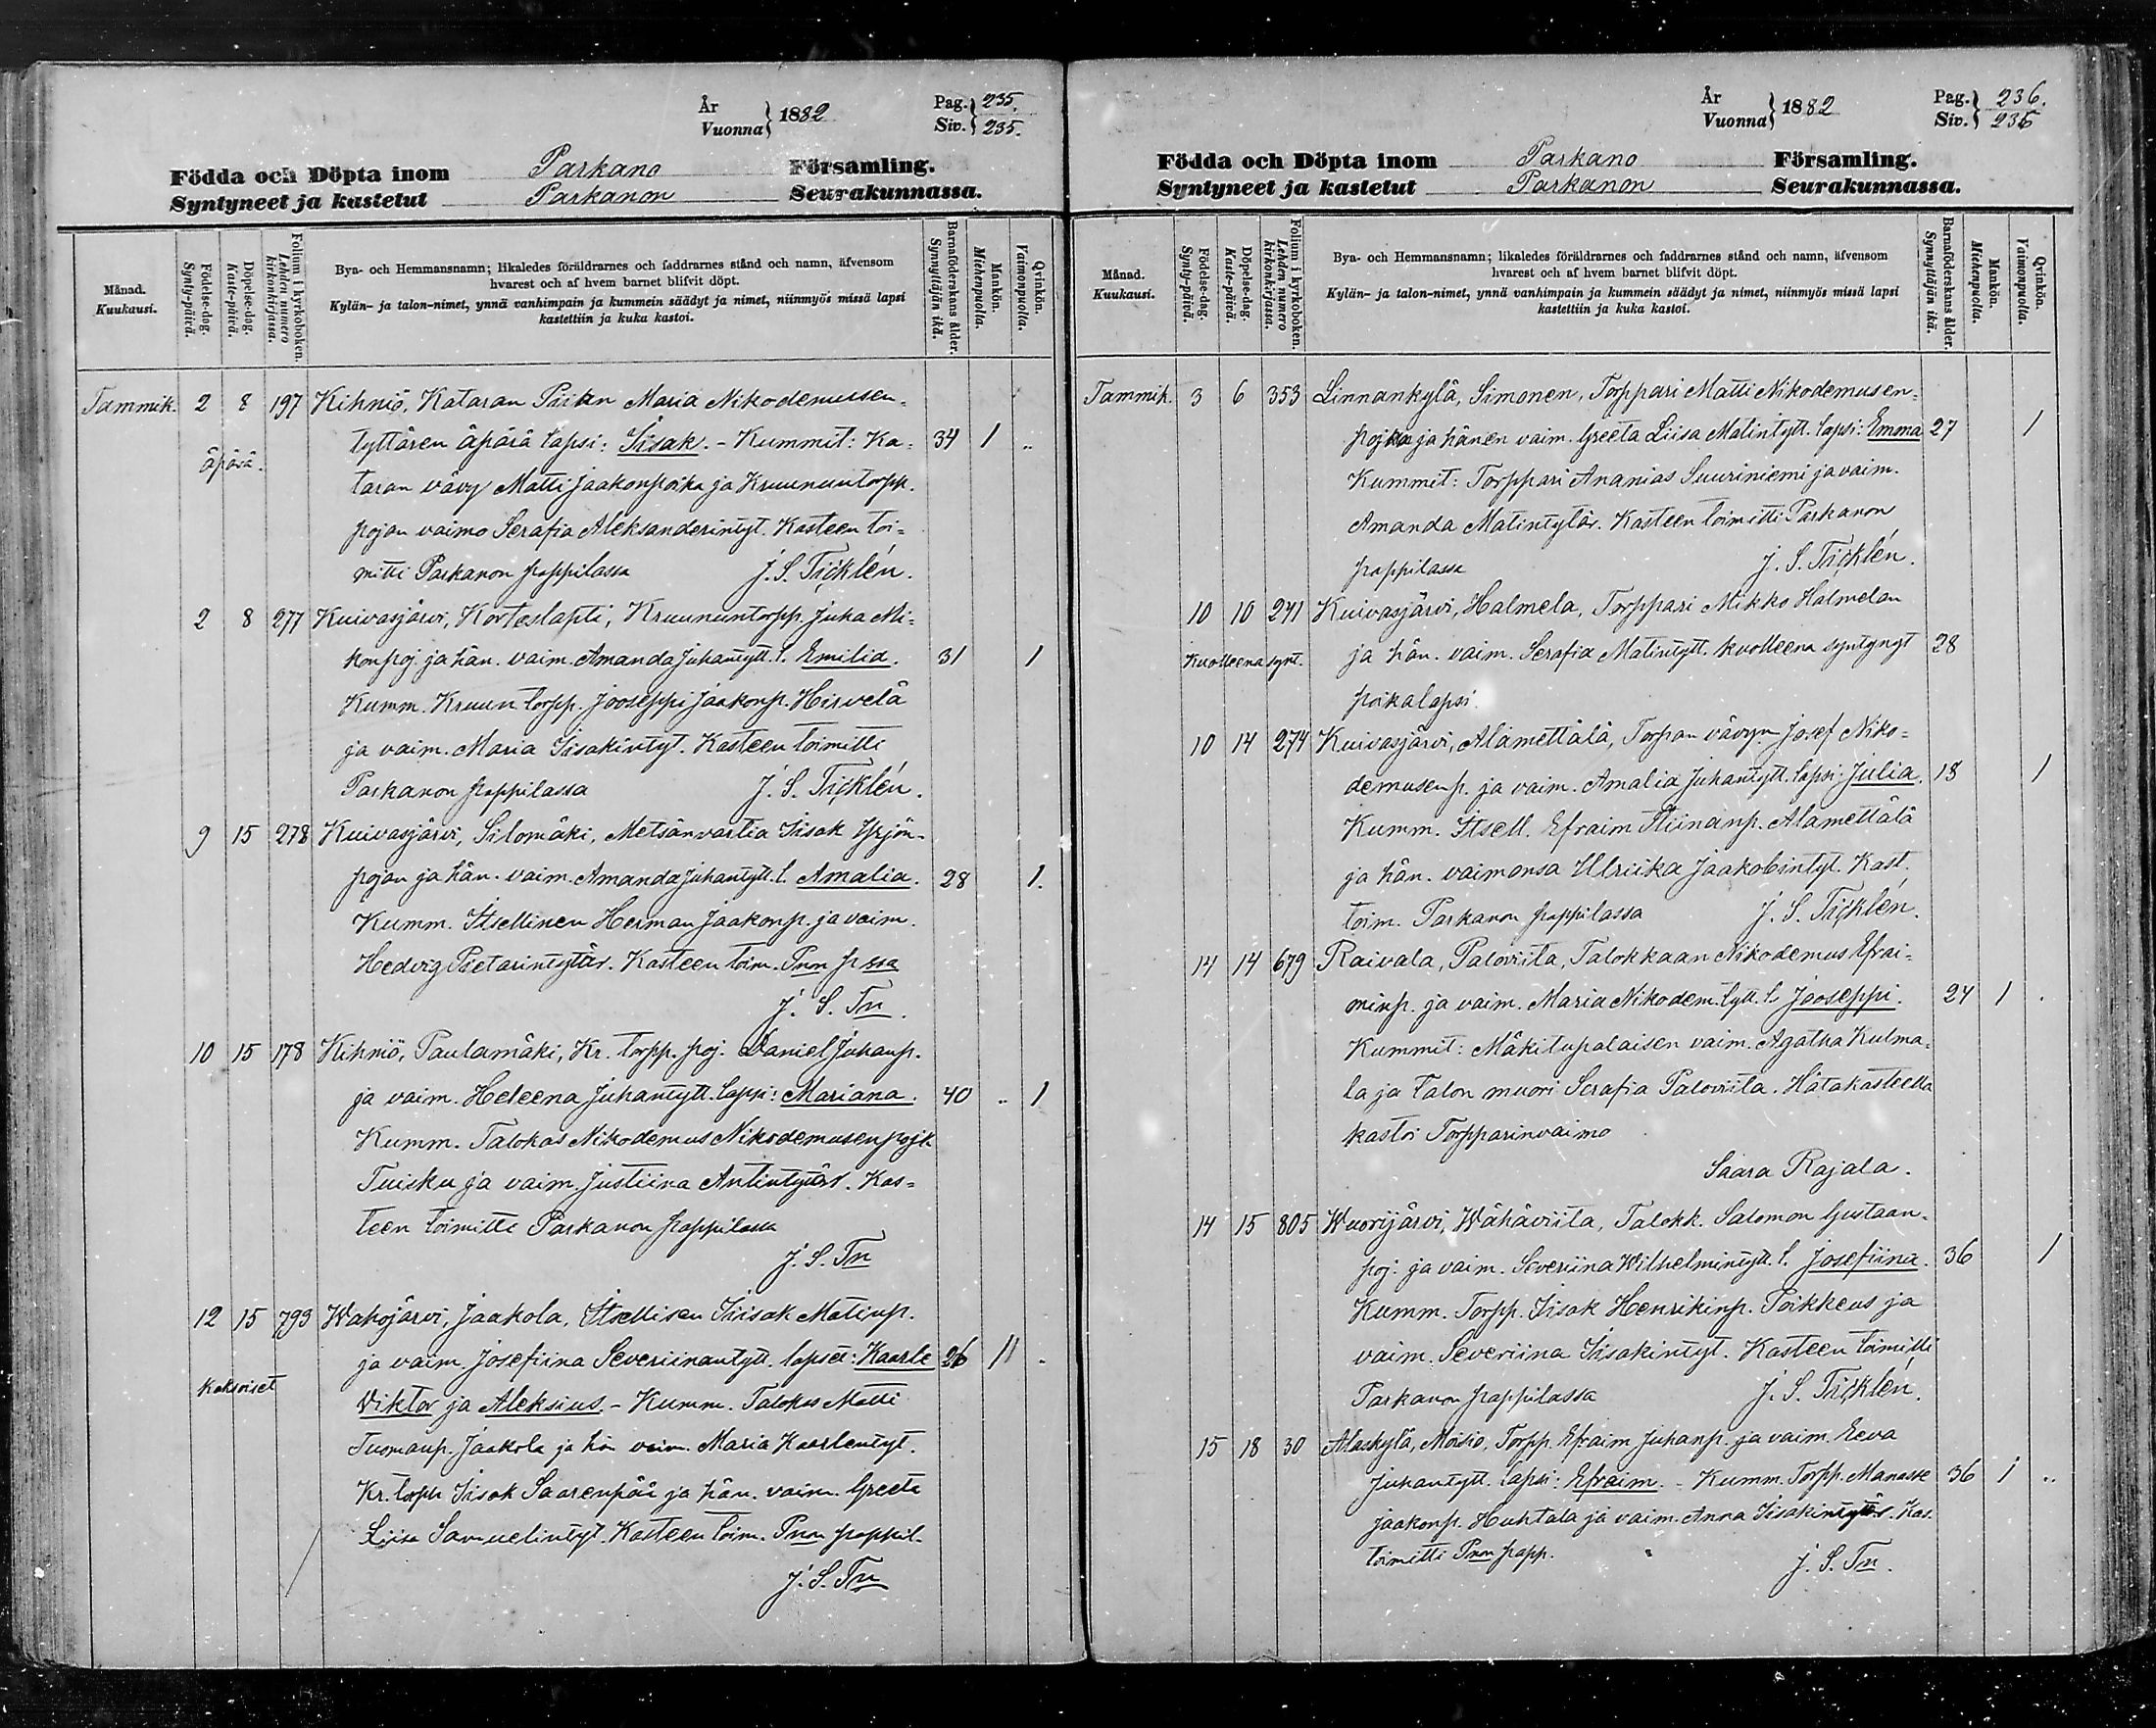 År
Vuonna } 1882
Pag. } 235.
Siv. } 235.
Födda och Döpta inom Parkano Församling.
Syntyneet ja kastetut Parkanon Seurakunnassa.
Månad.
Kuukausi.
Födelse-dag.
Synty-päivä.
Döpelse-dag.
Kaste-päivä.
Folium i kyrkoboken.
Lehden numero kirkonkirjassa.
Bya- och Hemmansnamn; likaledes föräldrarnes och faddrarnes stånd och namn, äfvensom
hvarest och af hvem barnet blifvit döpt.
Kylän- ja talon-nimet, ynnä vanhimpain ja kummein säädyt ja nimet, niinmyös missä lapsi
kastettiin ja kuka kastoi.
Barnaföderskans ålder.
Synnyttäjän ikä.
Mankön.
Miehenpuolta.
Qvinkön.
Vaimonpuolta.
Tammik. 2 8 197 Kihniö, Kataran Maria Nikodemussen-
tyttären äpärä lapsi: Iisak. - Kummit: Ka- 34 1 ..
äpärä.
taran vävy Matti Jaakonpoika ja Kruununtorpp.
pojan vaimo Serafia Aleksanderintyt. Kasteen toi=
mitti Parkanon pappilassa J. S. Ticklén.
2 8 277 Kuivasjärvi, Kortoslahti, Kruununtorpp. Juha Mi=
konpoj. ja hän. vaim. Amanda Juhantytt. l. Emilia. 31 1
Kumm. Kruun torpp. Jooseppi Jaakonp. Hirvelä
ja vaim. Maria Iisakintyt. Kasteen toimitti
Parkanon pappilassa J. S. Ticklén.
9 15 278 Kuivasjärvi, Silomäki, Metsänvartia Iisak Yrjön-
pojan ja hän. vaim. Amanda Juhantytt. l. Amalia. 28 1.
Kumm. Itsellinen Herman Jaakonp. ja vaim.
Hedvig Pietarintytär. Kasteen toim. Pnon pssa
J. S. Tn.
10 15 178 Kihniö, Paulamäki, Kr. torpp. poj. Daniel Juhanp.
ja vaim. Heleena Juhantytt. lapsi: Mariana. 40 .. 1
Kumm. Talokas Nikodemus Nikodemusenpojk
Tuisku ja vaim. Justiina Antintytär. Kas=
teen toimitti Parkanon pappilassa
J. S. Tn
12 15 793 Wahojärvi, Jaakola, Itsellisen Iisak Matinp.
ja vaim. Josefiina Severiinantytt. lapset: Kaarle 26 11 .
kaksoiset
Viktor ja Aleksius. - Kumm. Talokas Matti
Tuomanp. Jaakola ja hän vaim. Maria Kaarlentyt.
Kr. torpp Iisak Saarenpää ja hän. vaim. Greeta
Liisa Samuelintyt. Kasteen toim. Pnon pappil.
J. S. Tn
År
Vuonna } 1882
Pag. } 236.
Siv. } 236
Födda och Döpta inom Parkano Församling.
Syntyneet ja kastetut Parkanon Seurakunnassa.
Månad.
Kuukausi.
Födelse-dag.
Synty-päivä.
Döpelse-dag.
Kaste-päivä.
Folium i kyrkoboken.
Lehden numero kirkonkirjassa.
Bya- och Hemmansnamn; likaledes föräldrarnes och faddrarnes stånd och namn, äfvensom
hvarest och af hvem barnet blifvit döpt.
Kylän- ja talon-nimet, ynnä vanhimpain ja kummein säädyt ja nimet, niinmyös missä lapsi
kastettiin ja kuka kastoi.
Barnaföderskans ålder.
Synnyttäjän ikä.
Mankön.
Miehenpuolta.
Qvinkön.
Vaimonpuolta.
Tammik. 3 6 353 Linnankylä, Simonen, Torppari Matti Nikodemusen=
ja hänen vaim. Greeta Liisa Matintytt. lapsi: Emma 27 1
Kummit: Torppari Ananias Suuriniemi ja vaim.
Amanda Matintytär. Kasteen toimitti Parkanon
pappilassa J. S. Ticklén.
10 10 241 Kuivasjärvi, Halmela, Torppari Mikko Halmelan
kuolleena synt. ja hän. vaim. Serafia Matintytt. kuolleena syntynyt 28
poikalapsi.
10 14 274 Kuivasjärvi, Alamettälä, Torpan vävyn Josef Niko=
demusenp. ja vaim. Amalia Juhantytt. lapsi: Julia. 18 1
Kumm. Itsell. Efraim Stiinanp. Alamettälä
ja hän. vaimonsa Ulriika Jaakobintyt. Kast.
toim. Parkanon pappilassa J. S. Ticklén.
14 14 679 Raivala, Paloviita, Talokkaan Nikodemus Efrai=
minp. ja vaim. Maria Nikodem. tytt. l. Jooseppi. 24 1 .
Kummit: Mäkitupalaisen vaim. Agatha Kulma=
la ja talon muori Serafia Paloviita. Hätäkasteella
kastoi Torpparinvaimo
Saara Rajala.
14 15 805 Wuorijärvi, Wähäviita, Talokk. Salomon Gustaan-
poj. ja vaim. Severiina Wilhelmintyt. l. Josefiina. 36 1
Kumm. Torpp. Iisak Henrikinp. Poikkeus ja
vaim. Severiina Iisakintyt. Kasteen toimitti
Parkanon pappilassa J. S. Ticklén.
15 18 30 Alaskylä, Moisio, Torpp. Efraim Juhanp. ja vaim. Eeva
Juhantytt. lapsi: Efraim. - Kumm. Torpp. Manasse 36 1 ..
Jaakonp. Huhtala ja vaim. Anna Iisakintytär. Kas.
toimitti Pnon papp. J. S. Tn.